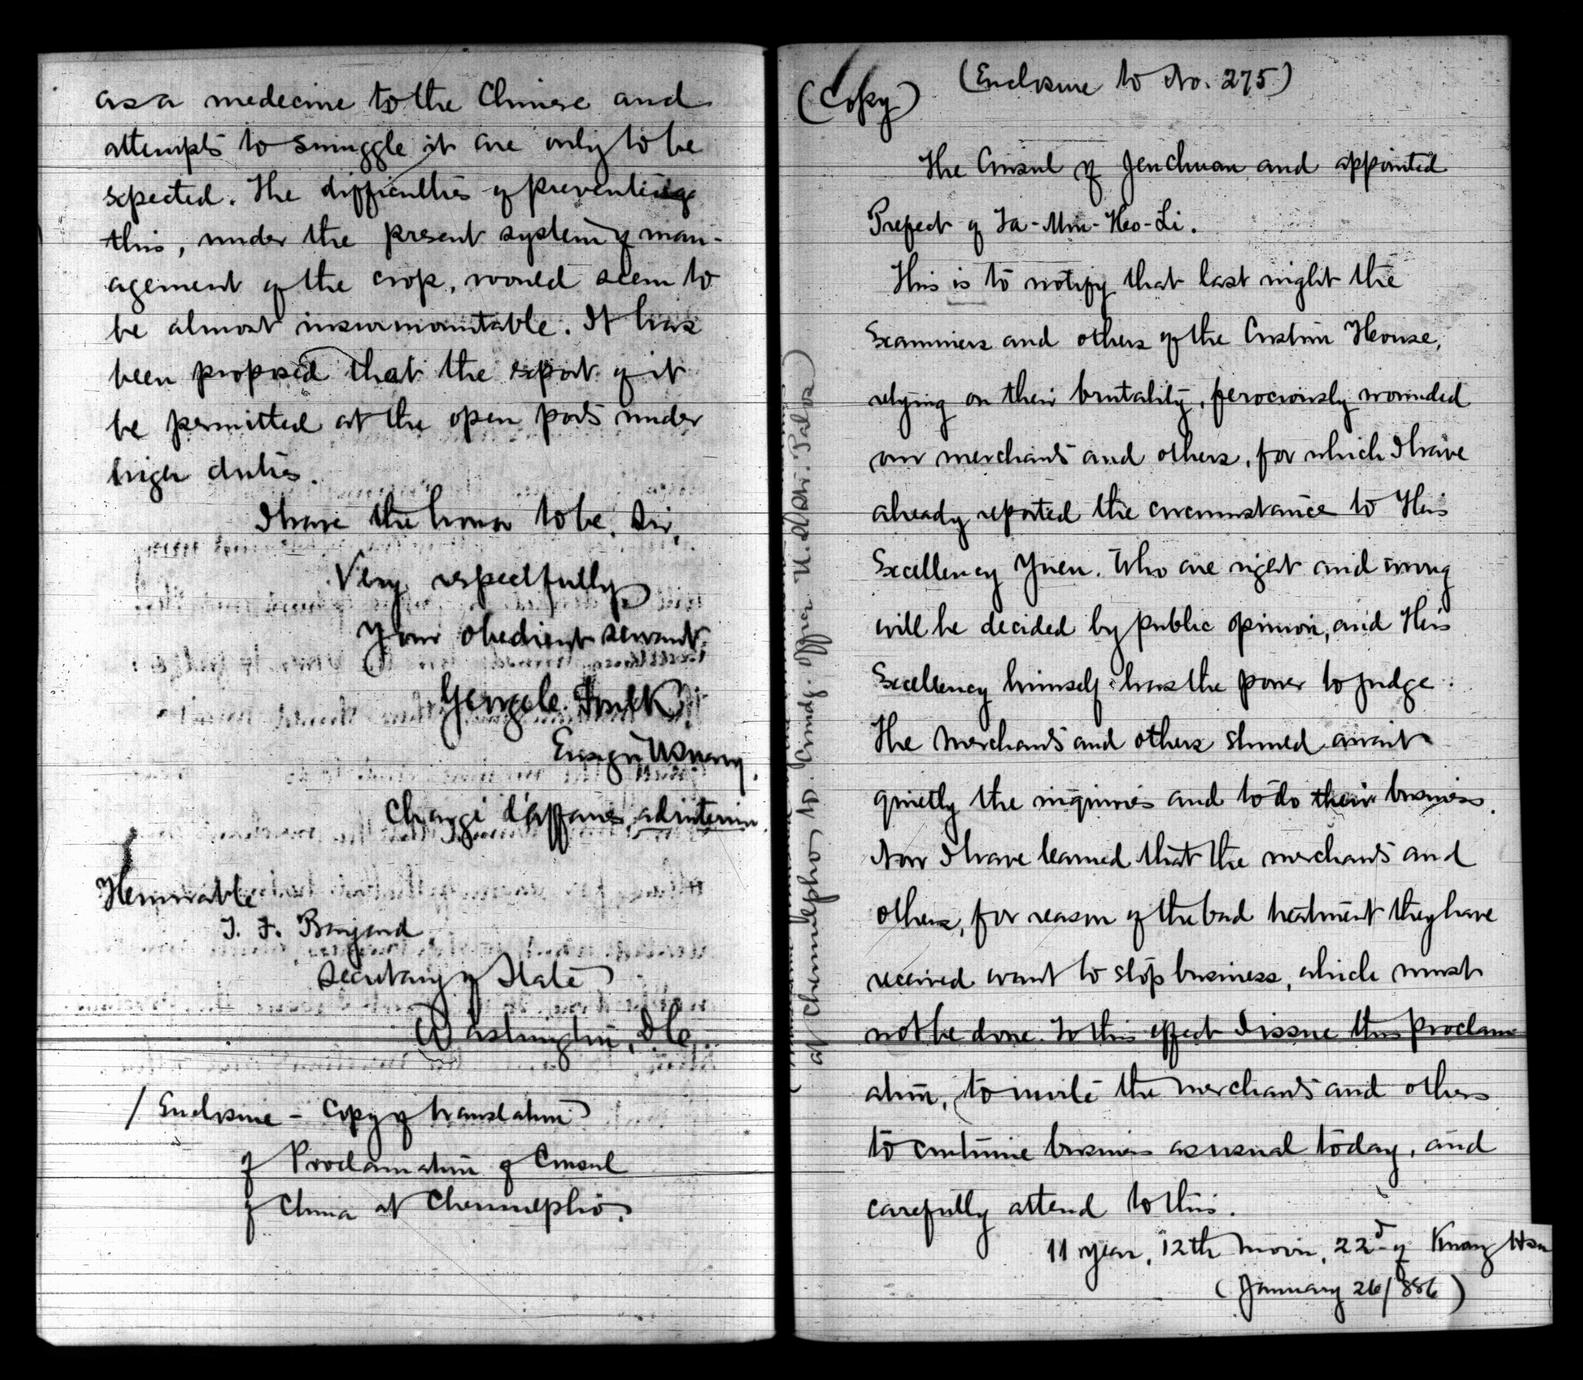 as a medecine to the Chinese and
attempts to smuggle it are only to be
expected. The difficulties of preventing
this, under the present system of man-
agement of the crop, would seem to
be almost insurmountable. It has
been proposed that the export of it
be permitted at the open ports under
high duties.
I have the honor to be, Sir,
Very respectfully
Your obedient servant,
George C. Foulk,
Ensign U.S. Navy.
Chargé d'affaires ad interim.
Honorable
T. F. Bayard
Secretary of State
Washington, D.C.
1 Enclosure – Copy of translation
of Proclamation of Consul
of China at Chemulpho.
(Copy) (Enclosure to No. 275)
The Consul of Jenchuan and appointed
Prefect of
This is to notify that last night the
Examiners and others of the Custom House,
relying on their brutality, ferociously wounded
our merchants and others, for which I have
already reported the circumstance to His
Excellency Yuen. Who are right and wrong
will be decided by public opinion, and His
Excellency himself has the power to judge.
The merchants and others should await
quietly the inquiries and to do their business.
Now I have learned that the merchants and
others, for reason of the bad treatment they have
received want to stop business, which must
not be done. To this effect I issue this proclam
ation, to invite the merchants and others
to continue business as usual today, and
carefully attend to this.
11 year, 12th moon, 22d of Kuang Hsu
(January 26/886)
at Chemulpho to Comdg. Officer U.S.Str. Palos)